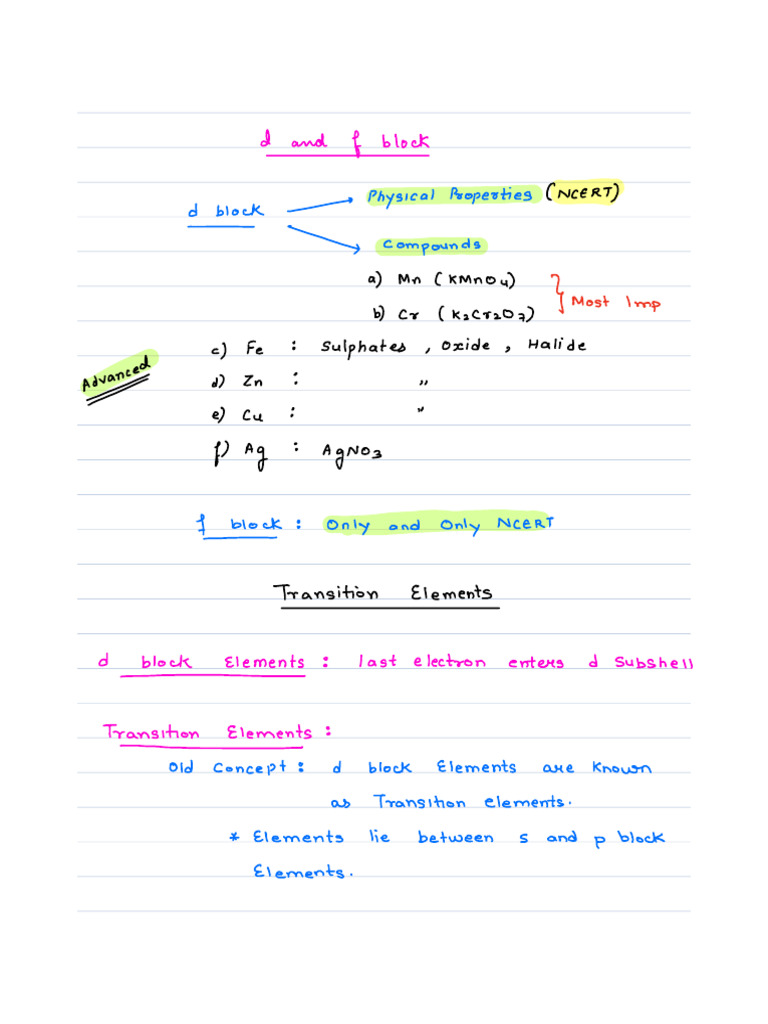 d and f block
Physical Properties (NCERT)
d block
Compounds
a) Mn (KMnO4)
b) Cr (K2Cr2O7)
Most Imp
c) Fe : Sulphates, Oxide, Halide
Advanced
d) Zn : "
e) Cu : "
f) Ag : AgNO3
f block : Only and Only NCERT
Transition Elements
d block Elements : last electron enters d Subshell
Transition Elements :
Old Concept : d block Elements are Known
as Transition elements.
* Elements lie between s and p block
Elements.